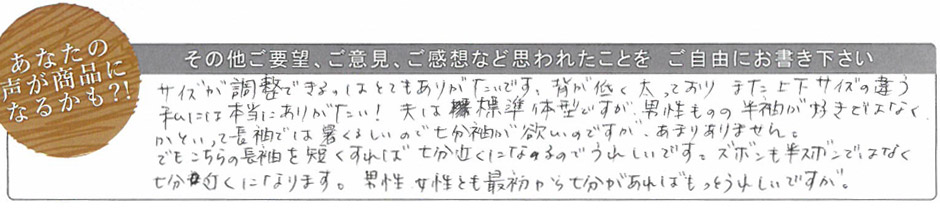 あなたの
声が商品に
なるかも?!
その他ご要望、ご意見、ご感想など思われたことを ご自由にお書き下さい
サイズが調整できる。はとてもありがたいです。背が低く太っており また上下サイズの違う
私には本当にありがたい! 夫は標準体型ですが、男性ものの半袖が好きではなく
かといって長袖では暑くるしいので七分袖が欲いのですが、あまりありません。
でもこちらの長袖を短くすれば七分近くになるのでうれしいです。ズボンも半ズボンではなく
七分近くになります。男性女性とも最初から七分があればもっとうれしいですが。